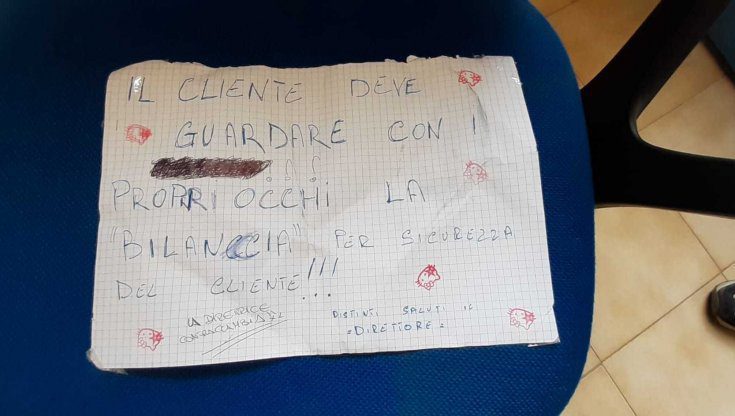 IL CLIENTE DEVE
GUARDARE CON I
PROPRI OCCHI LA
"BILANCCIA" PER SICUREZZA
DEL CLIENTE!!!
LA DIRETTRICE
DISTINTI SALUTI IL
"DIRETTORE"